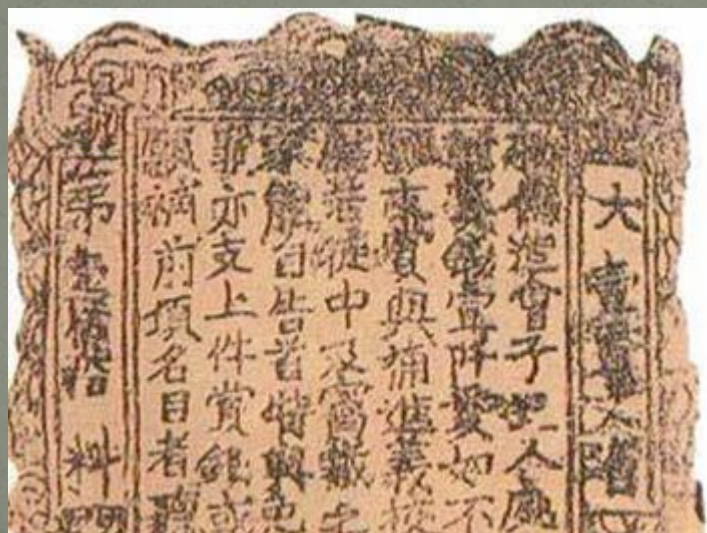 大壹貫文省
敕偽造會子犯人處
斬賞錢壹阡貫如不
願支賞與補進義校
尉若徒中及窩藏之
家能自告首特與免
罪亦支上件賞錢或
願補前項名目者聽
第壹佰拾料